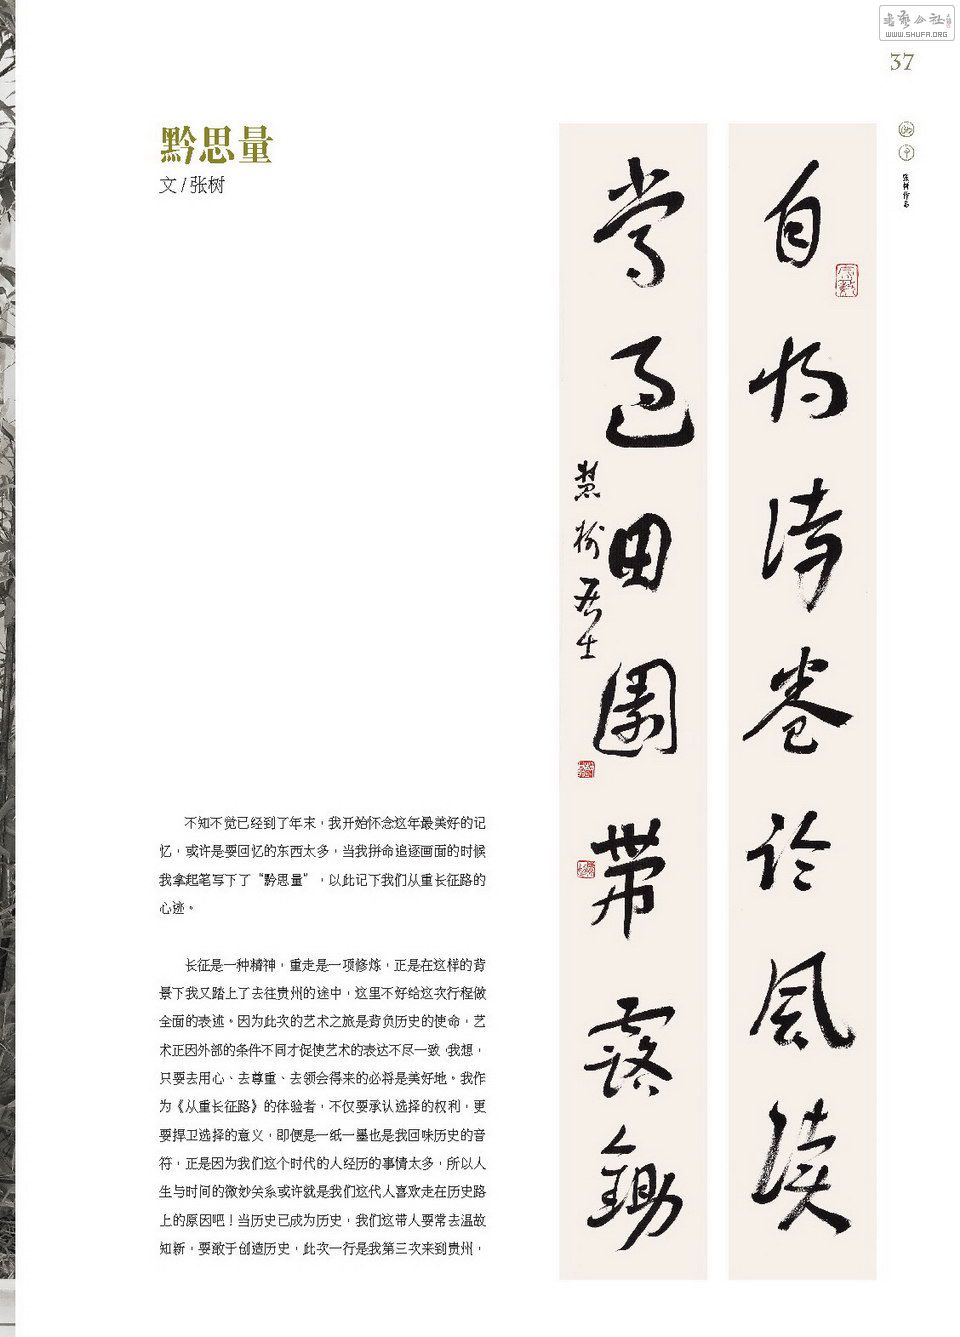 书艺公社
WWW.SHUFA.ORG
37
黔思量
文/张树
张树作品
自把诗卷临风读
常过田园带露锄
慧树居士
不知不觉已经到了年末，我开始怀念这年最美好的记
忆，或许是要回忆的东西太多，当我拼命追逐画面的时候
我拿起笔写下了“黔思量”，以此记下我们从重长征路的
心迹。
长征是一种精神，重走是一项修炼，正是在这样的背
景下我又踏上了去往贵州的途中，这里不好给这次行程做
全面的表述。因为此次的艺术之旅是背负历史的使命，艺
术正因外部的条件不同才促使艺术的表达不尽一致，我想，
只要去用心、去尊重、去领会得来的必将是美好地。我作
为《从重长征路》的体验者，不仅要承认选择的权利，更
要捍卫选择的意义，即便是一纸一墨也是我回味历史的音
符，正是因为我们这个时代的人经历的事情太多，所以人
生与时间的微妙关系或许就是我们这代人喜欢走在历史路
上的原因吧！当历史已成为历史，我们这带人要常去温故
知新，要敢于创造历史，此次一行是我第三次来到贵州，